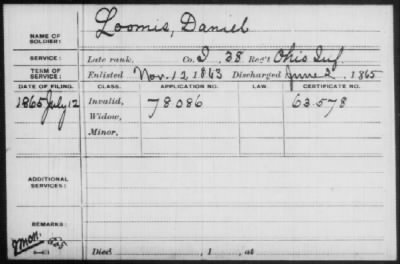 NAME OF SOLDIER: Loomis, Daniel
SERVICE: Late rank, Co. I 38 Reg't Ohio Inf.
TERM OF SERVICE: Enlisted Nov. 12, 1863 Discharged June 2, 1865
DATE OF FILING. CLASS. APPLICATION NO. LAW. CERTIFICATE NO.
1865 July 12 Invalid, 78 086 63.578
Widow,
Minor,
ADDITIONAL SERVICES:
REMARKS:
Died , 1 , at